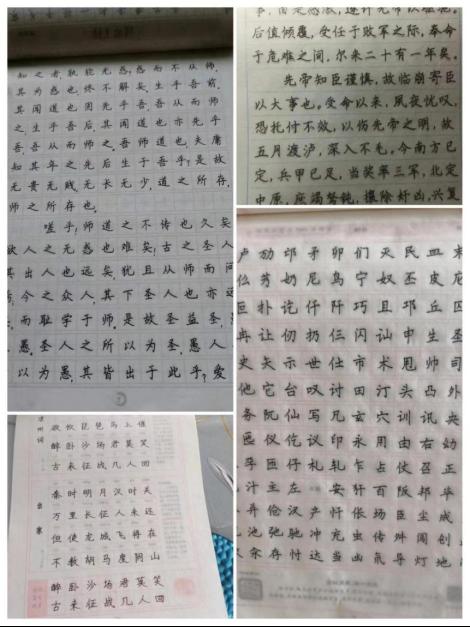 知之者,孰能无惑,惑而不从师,
其为惑也,终不解矣。生乎吾前,
其闻道也固先乎吾,吾从而师
之生乎吾后,其闻道也亦先乎
吾,吾从而师之。吾师道也,夫庸
知其年之先后生于吾乎?是故
无贵无贱,无长无少,道之所存,
师之所存也。
嗟乎!师道之不传也久矣
欲人之无惑也难矣!古之圣人
其出人也远矣,犹且从师而问
今之众人,其下圣人也亦远
而耻学于师,是故圣益圣,
愚。圣人之所以为圣,愚人
以为愚,其皆出于此乎?爱
后值倾覆,受任于败军之际,奉命
于危难之间,尔来二十有一年矣。
先帝知臣谨慎,故临崩寄臣
以大事也。受命以来,夙夜忧叹,
恐托付不效,以伤先帝之明,故
五月渡泸,深入不毛。今南方已
定,兵甲已足,当奖率三军,北定
中原,庶竭驽钝,攘除奸凶,兴复
凉州词
欲饮琵琶马上催
醉卧沙场君莫笑
古来征战几人回
出塞
秦时明月汉时关
万里长征人未还
但使龙城飞将在
不教胡马度阴山
醉卧沙场君莫笑
古来征战几人回
卢劢邙矛卯们灭民皿末
仫艿奶尼鸟宁奴丕皮庀
叵扑讫仟阡巧且邛丘
冉让仞扔仨闪讪申生圣
史矢示世仕市术甩帅司
他它台叹讨田汀头凸外
务阮仙写兄玄穴训讯央
匜仪仡议印永用由右幼
孕匝仔札轧乍占仗召正
汁主左安奸百阪邦毕
弁伧汉产忏伥场臣尘成
池弛驰冲充虫传舛闯创
汆存忖达当凼氘导灯地